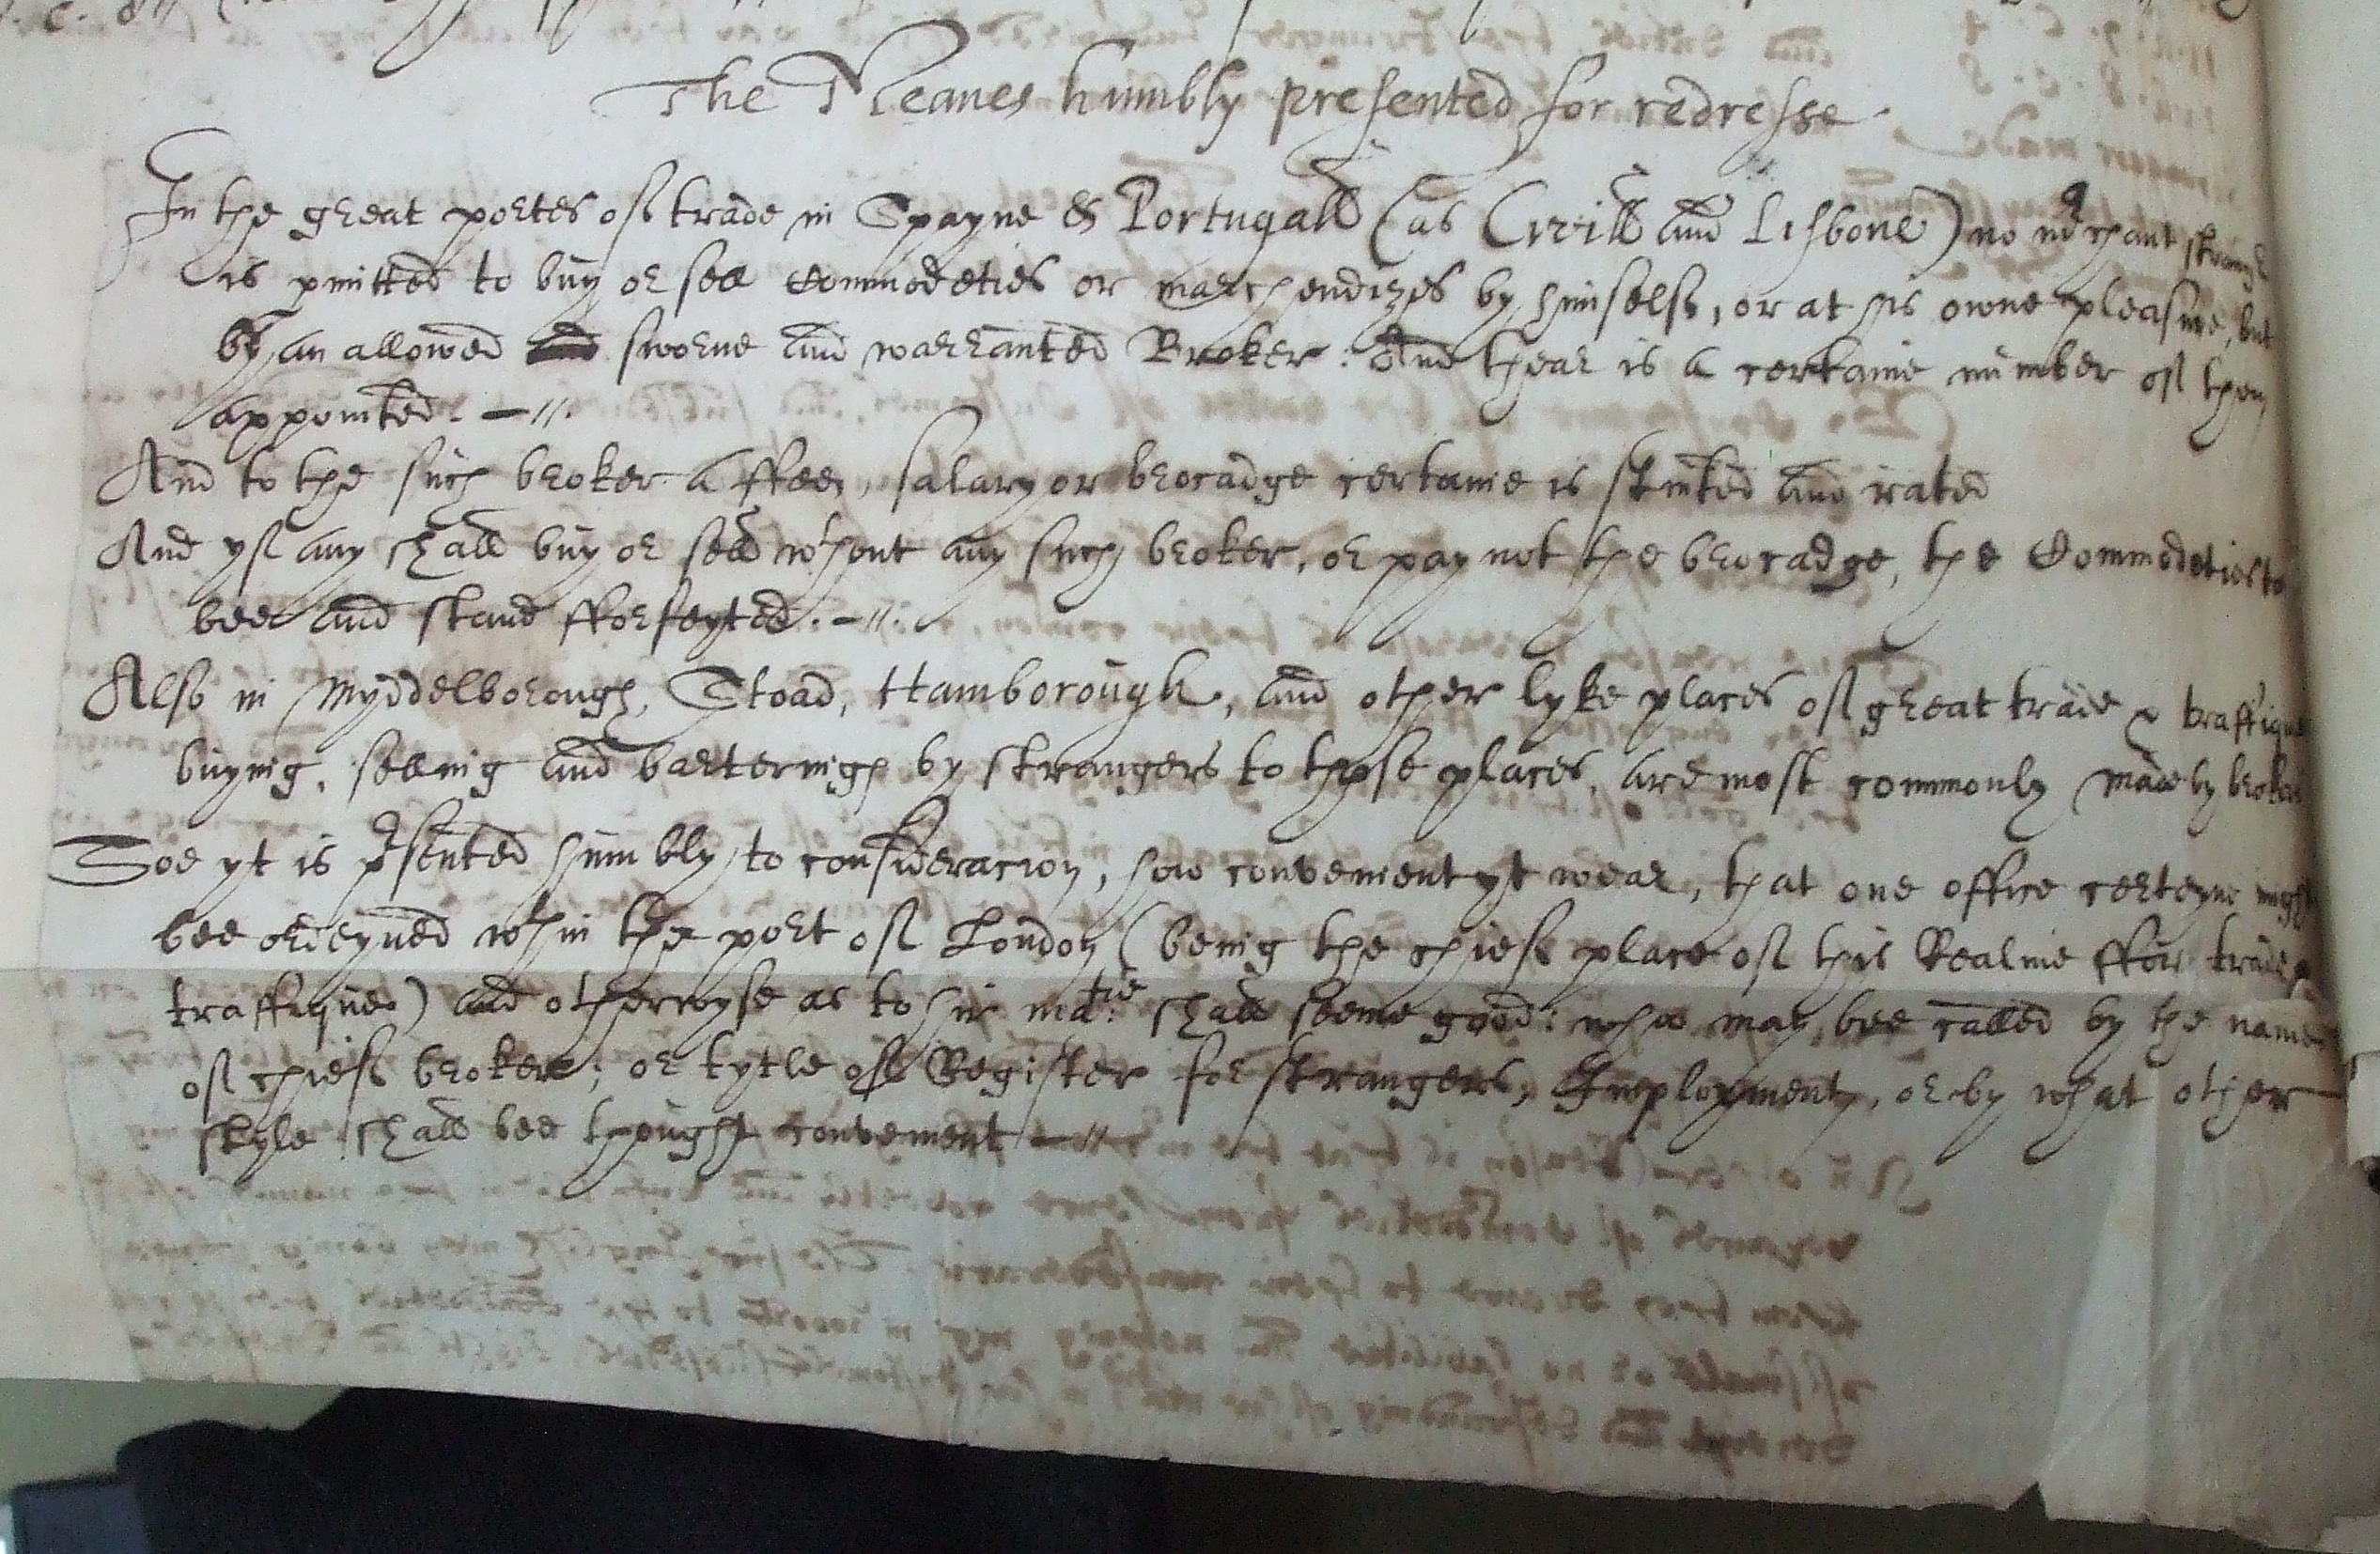 The Meanes humbly presented for redresse.
In the great portes of trade in Spayne & Portugall (as Civill and Lisbone) no mrchant strang
is pmitted to buy or sell Commodeties or marchendizes by himself, or at his owne pleasure, but
by an allowed sworne and warranted Broker: And thear is a certaine number of them
appointed.
And to the such broker a ffee, salary or brocadge certaine is stinted and rated
And yf any shall buy or sell wthout any such broker, or pay not the brocadge, the Commodeties to
bee and stand fforfeyted.
Also in Myddelborough, Stoad, Hamborough, and other lyke places of great trade & traffique
buying, selling and barteringe by strangers to those places, are most commonly made by brokers
Soe yt is prsented humbly to consideracion, how convenient yt wear, that one office certeyne might
bee ordeyned wthin the port of London (being the chief place of this Realme ffor trade &
traffique) and otherwyse as to hir matie: shall seeme good: who may bee called by the name
of chief broker; or tytle of Register for strangers, Imployment, or by what other
style shall bee thought convenient